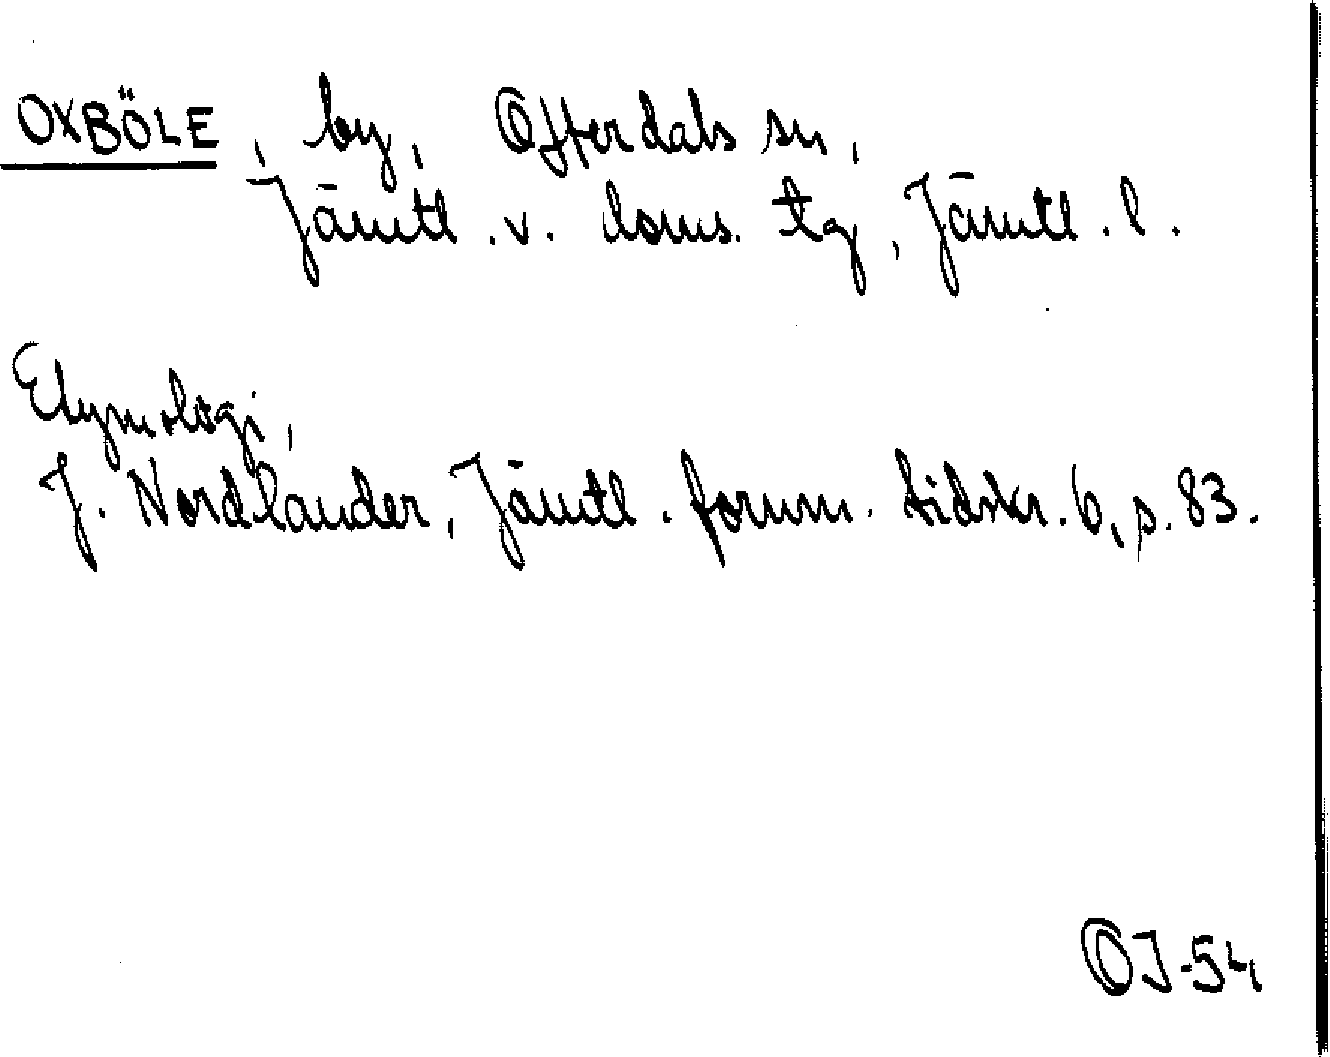 OXBÖLE, by, Offerdals sn,
Jämtl. v. doms. tg, Jämtl. l.
Etymologi,
J. Nordlander, Jämtl. fornm. tidskr. 6, s. 83.
OJ-54